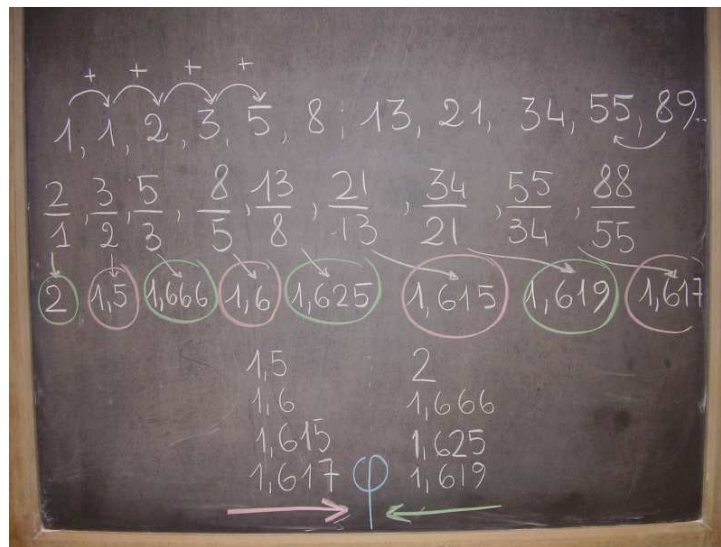 + + + +
1, 1, 2, 3, 5, 8, 13, 21, 34, 55, 89..
2/1, 3/2, 5/3, 8/5, 13/8, 21/13, 34/21, 55/34, 88/55
2 1,5 1,666 1,6 1,625 1,615 1,619 1,617
1,5 2
1,6 1,666
1,615 1,625
1,617 φ 1,619